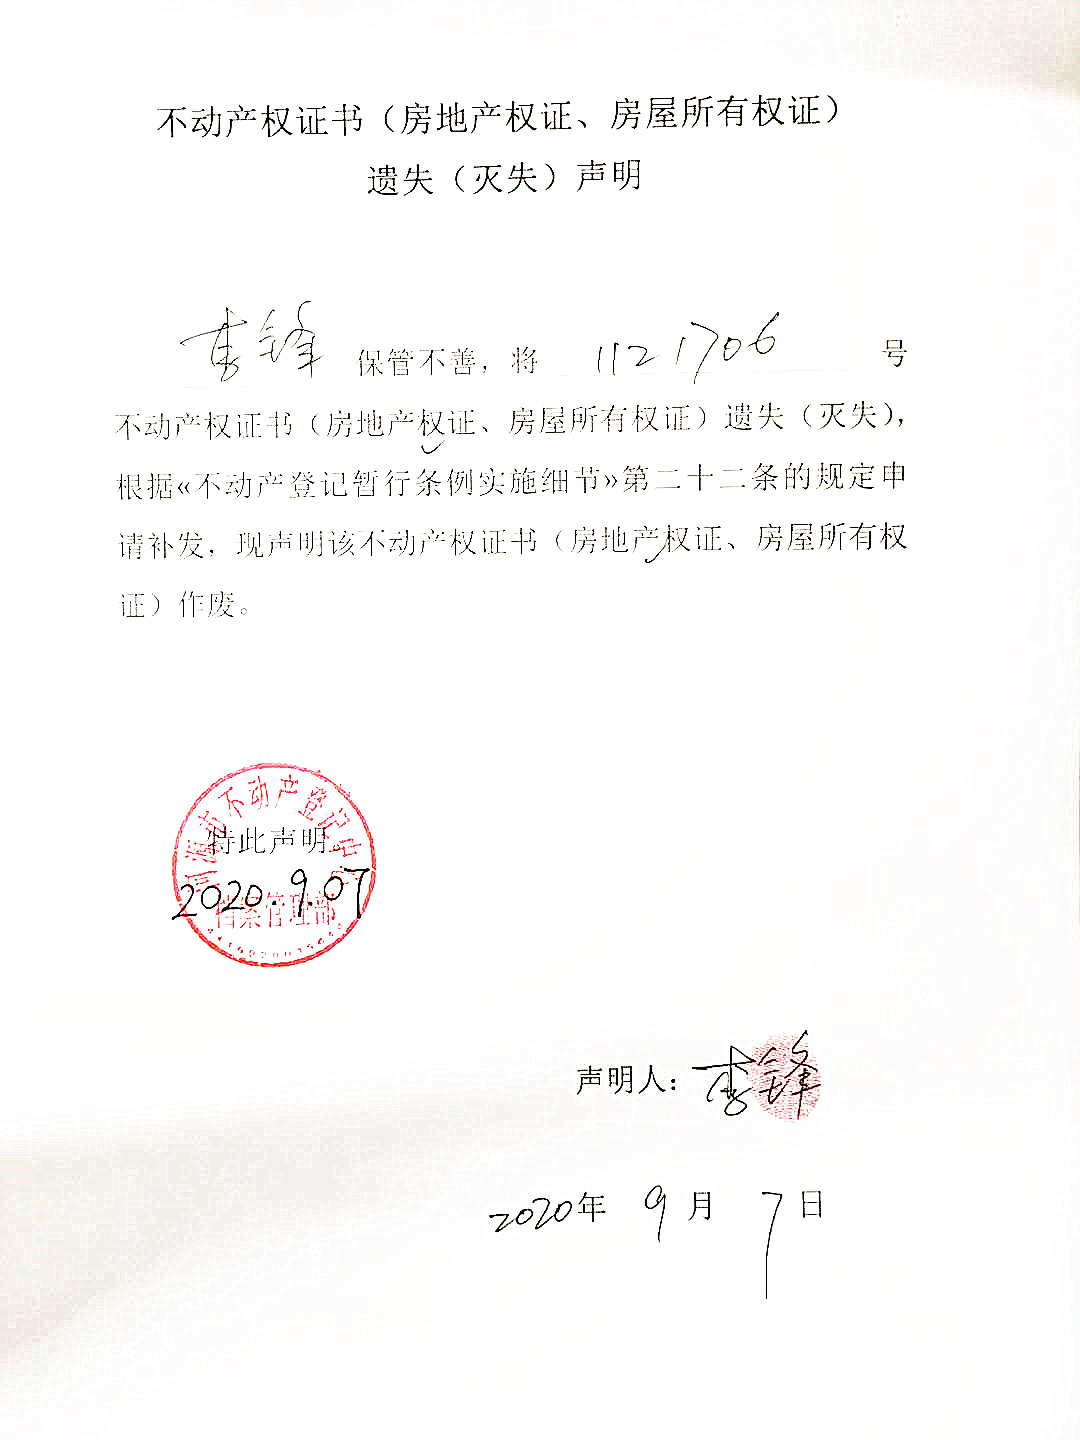 不动产权证书（房地产权证、房屋所有权证）
遗失（灭失）声明
李锋 保管不善，将 1121706 号
不动产权证书（房地产权证、房屋所有权证）遗失（灭失），
根据«不动产登记暂行条例实施细节»第二十二条的规定申
请补发，现声明该不动产权证书（房地产权证、房屋所有权
证）作废。
河源市不动产登记中
特此声明。
2020.9.07
档案管理部
声明人：李锋
2020年 9月 7日